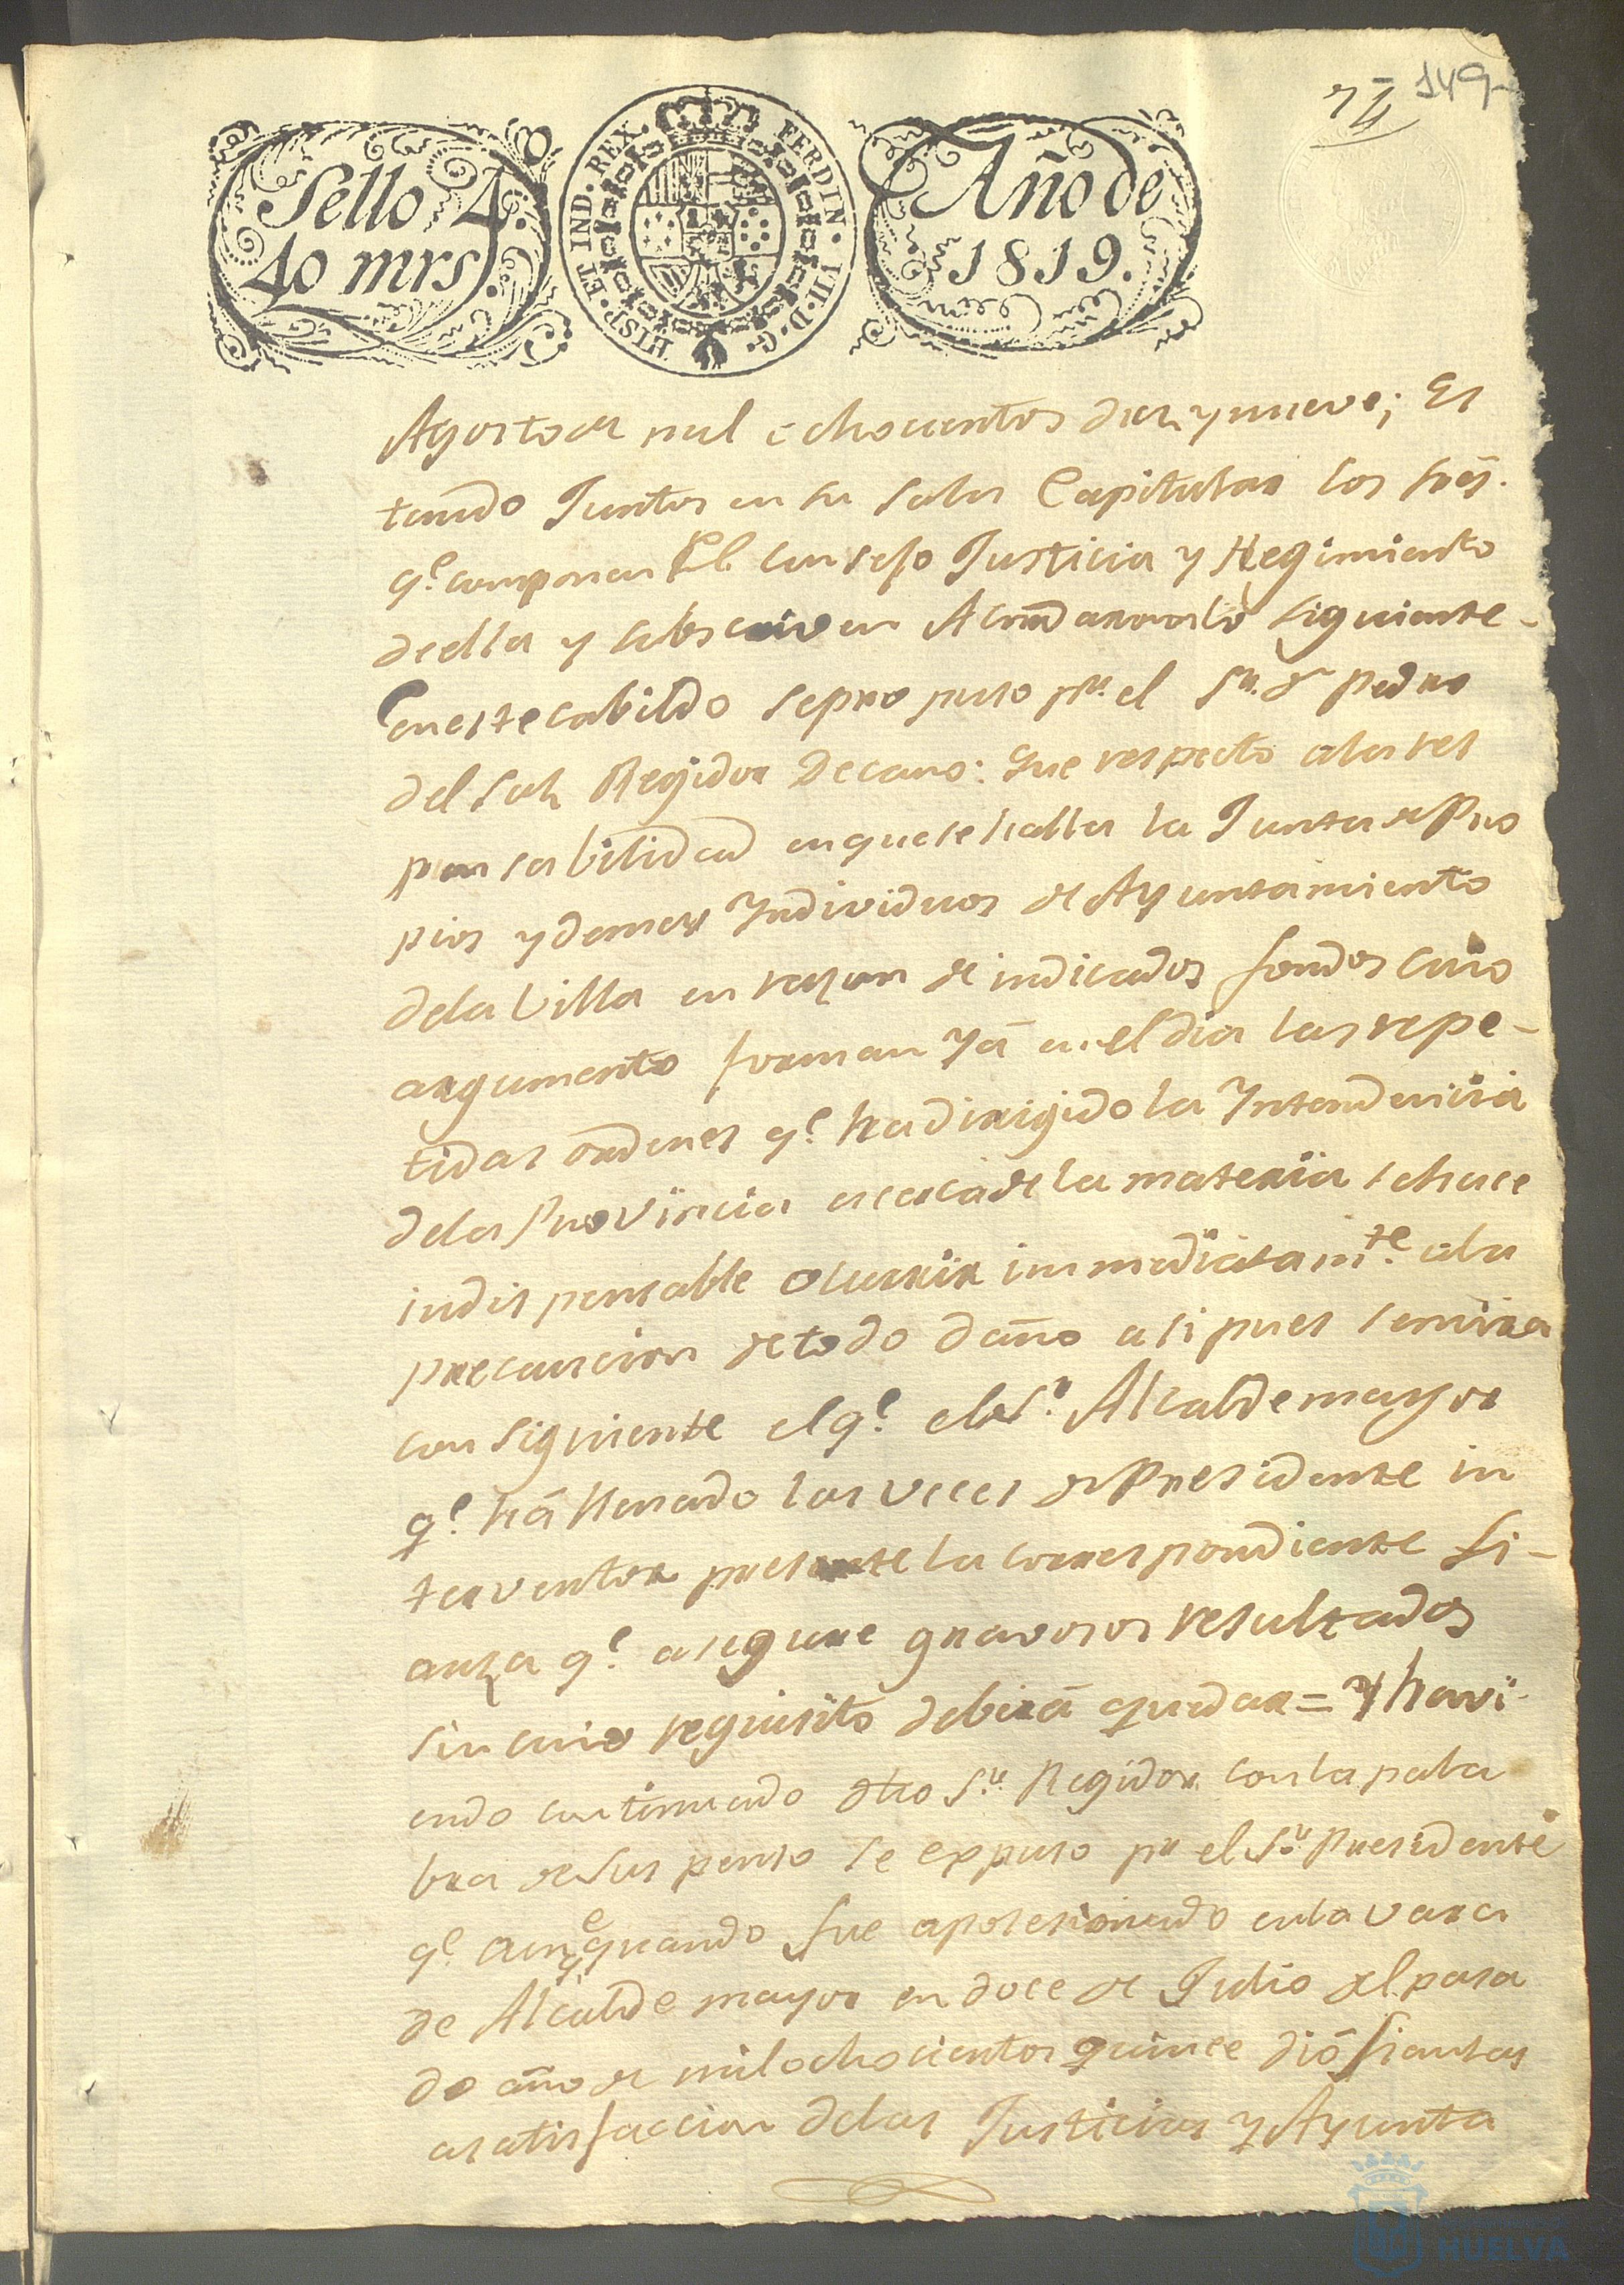 74 149
Sello 4.º
40 mrs.
HISP. ET IND. REX. FERDIN. VII. D. G.
Año de
1819.
Agosto de mil ochocientos diez y nueve; Es
tando Juntos en su sala Capitular los Sres.
q.e componen El Consejo Justicia y Regimiento
de ella y subscriven Acordaron lo siguiente -
En este cabildo se propuso p.r el S.r d.n Pedro
del Saz Regidor Decano: Que respecto a la res
ponsabilidad en que se halla la Junta de Pro
pios y demas Individuos de Ayuntamiento
de la Villa en razon de indicados fondos cuio
argumento forman Yá en el dia las repe-
tidas ordenes q.e ha dirigido la Yntendencia
de la Provincia acerca de la materia se hace
indispensable ocurrir inmediatam.te a la
precaucion de todo daño asi pues se mira
consiguiente el q.e el S.r Alcalde mayor
q.e há llenado las veces de Presidente in
terventor preste la correspondiente fi-
anza q.e asegure gravosos resultados
sin cuio requisito deberá quedar = Y havi-
endo continuado dho S.r Regidor con la pala
bra de suspenso se expuso pr el S.r Presidente
q.e aunq.e quando fue aposesionado en la vara
de Alcalde mayor en doce de Julio del pasa
do año de mil ochocientos quince dió fianzas
a satisfaccion de las Justicias y Ayunta
HUELVA